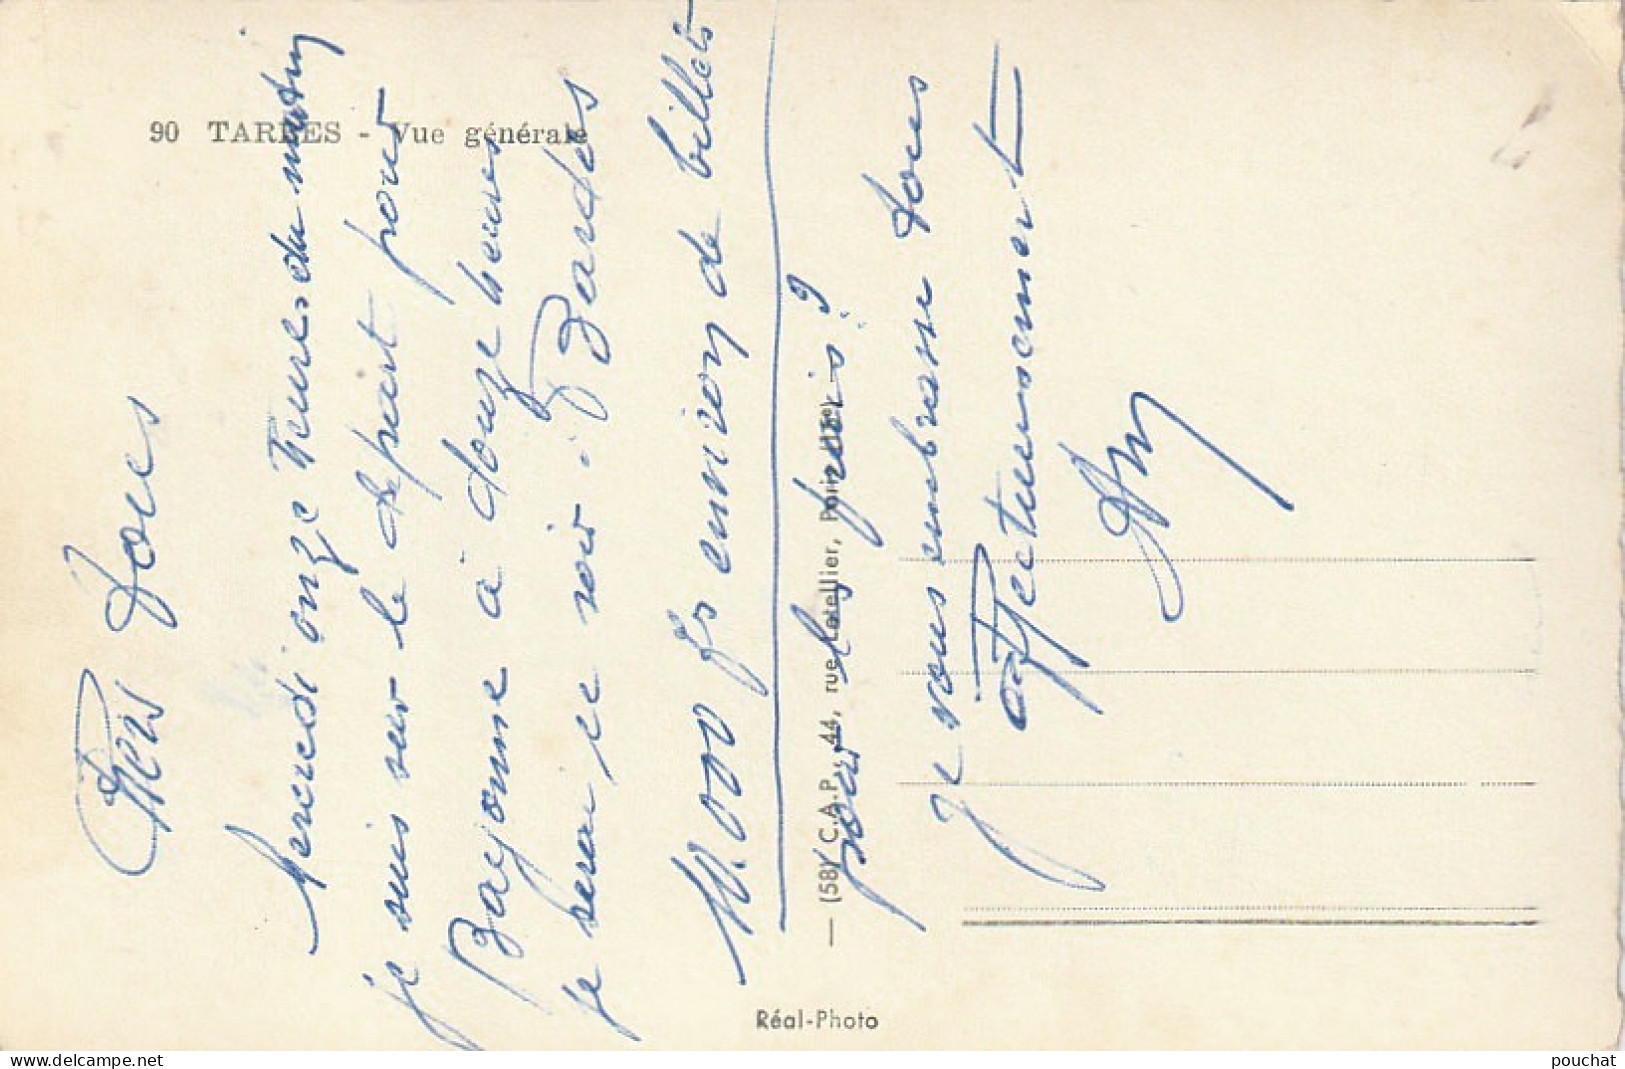 90 TARBES - Vue générale
Chers tous
Mercredi onze heures du matin
je suis sur le départ pour
Bayonne à douze heures
je serai ce soir à Bordes
10.000 frs environ de billets
pour les frais ?
je vous embrasse tous
affectueusement
— (58) C.A.P. 44, rue Letellier, Paris (15e) —
Réal-Photo
www.delcampe.net
pouchat